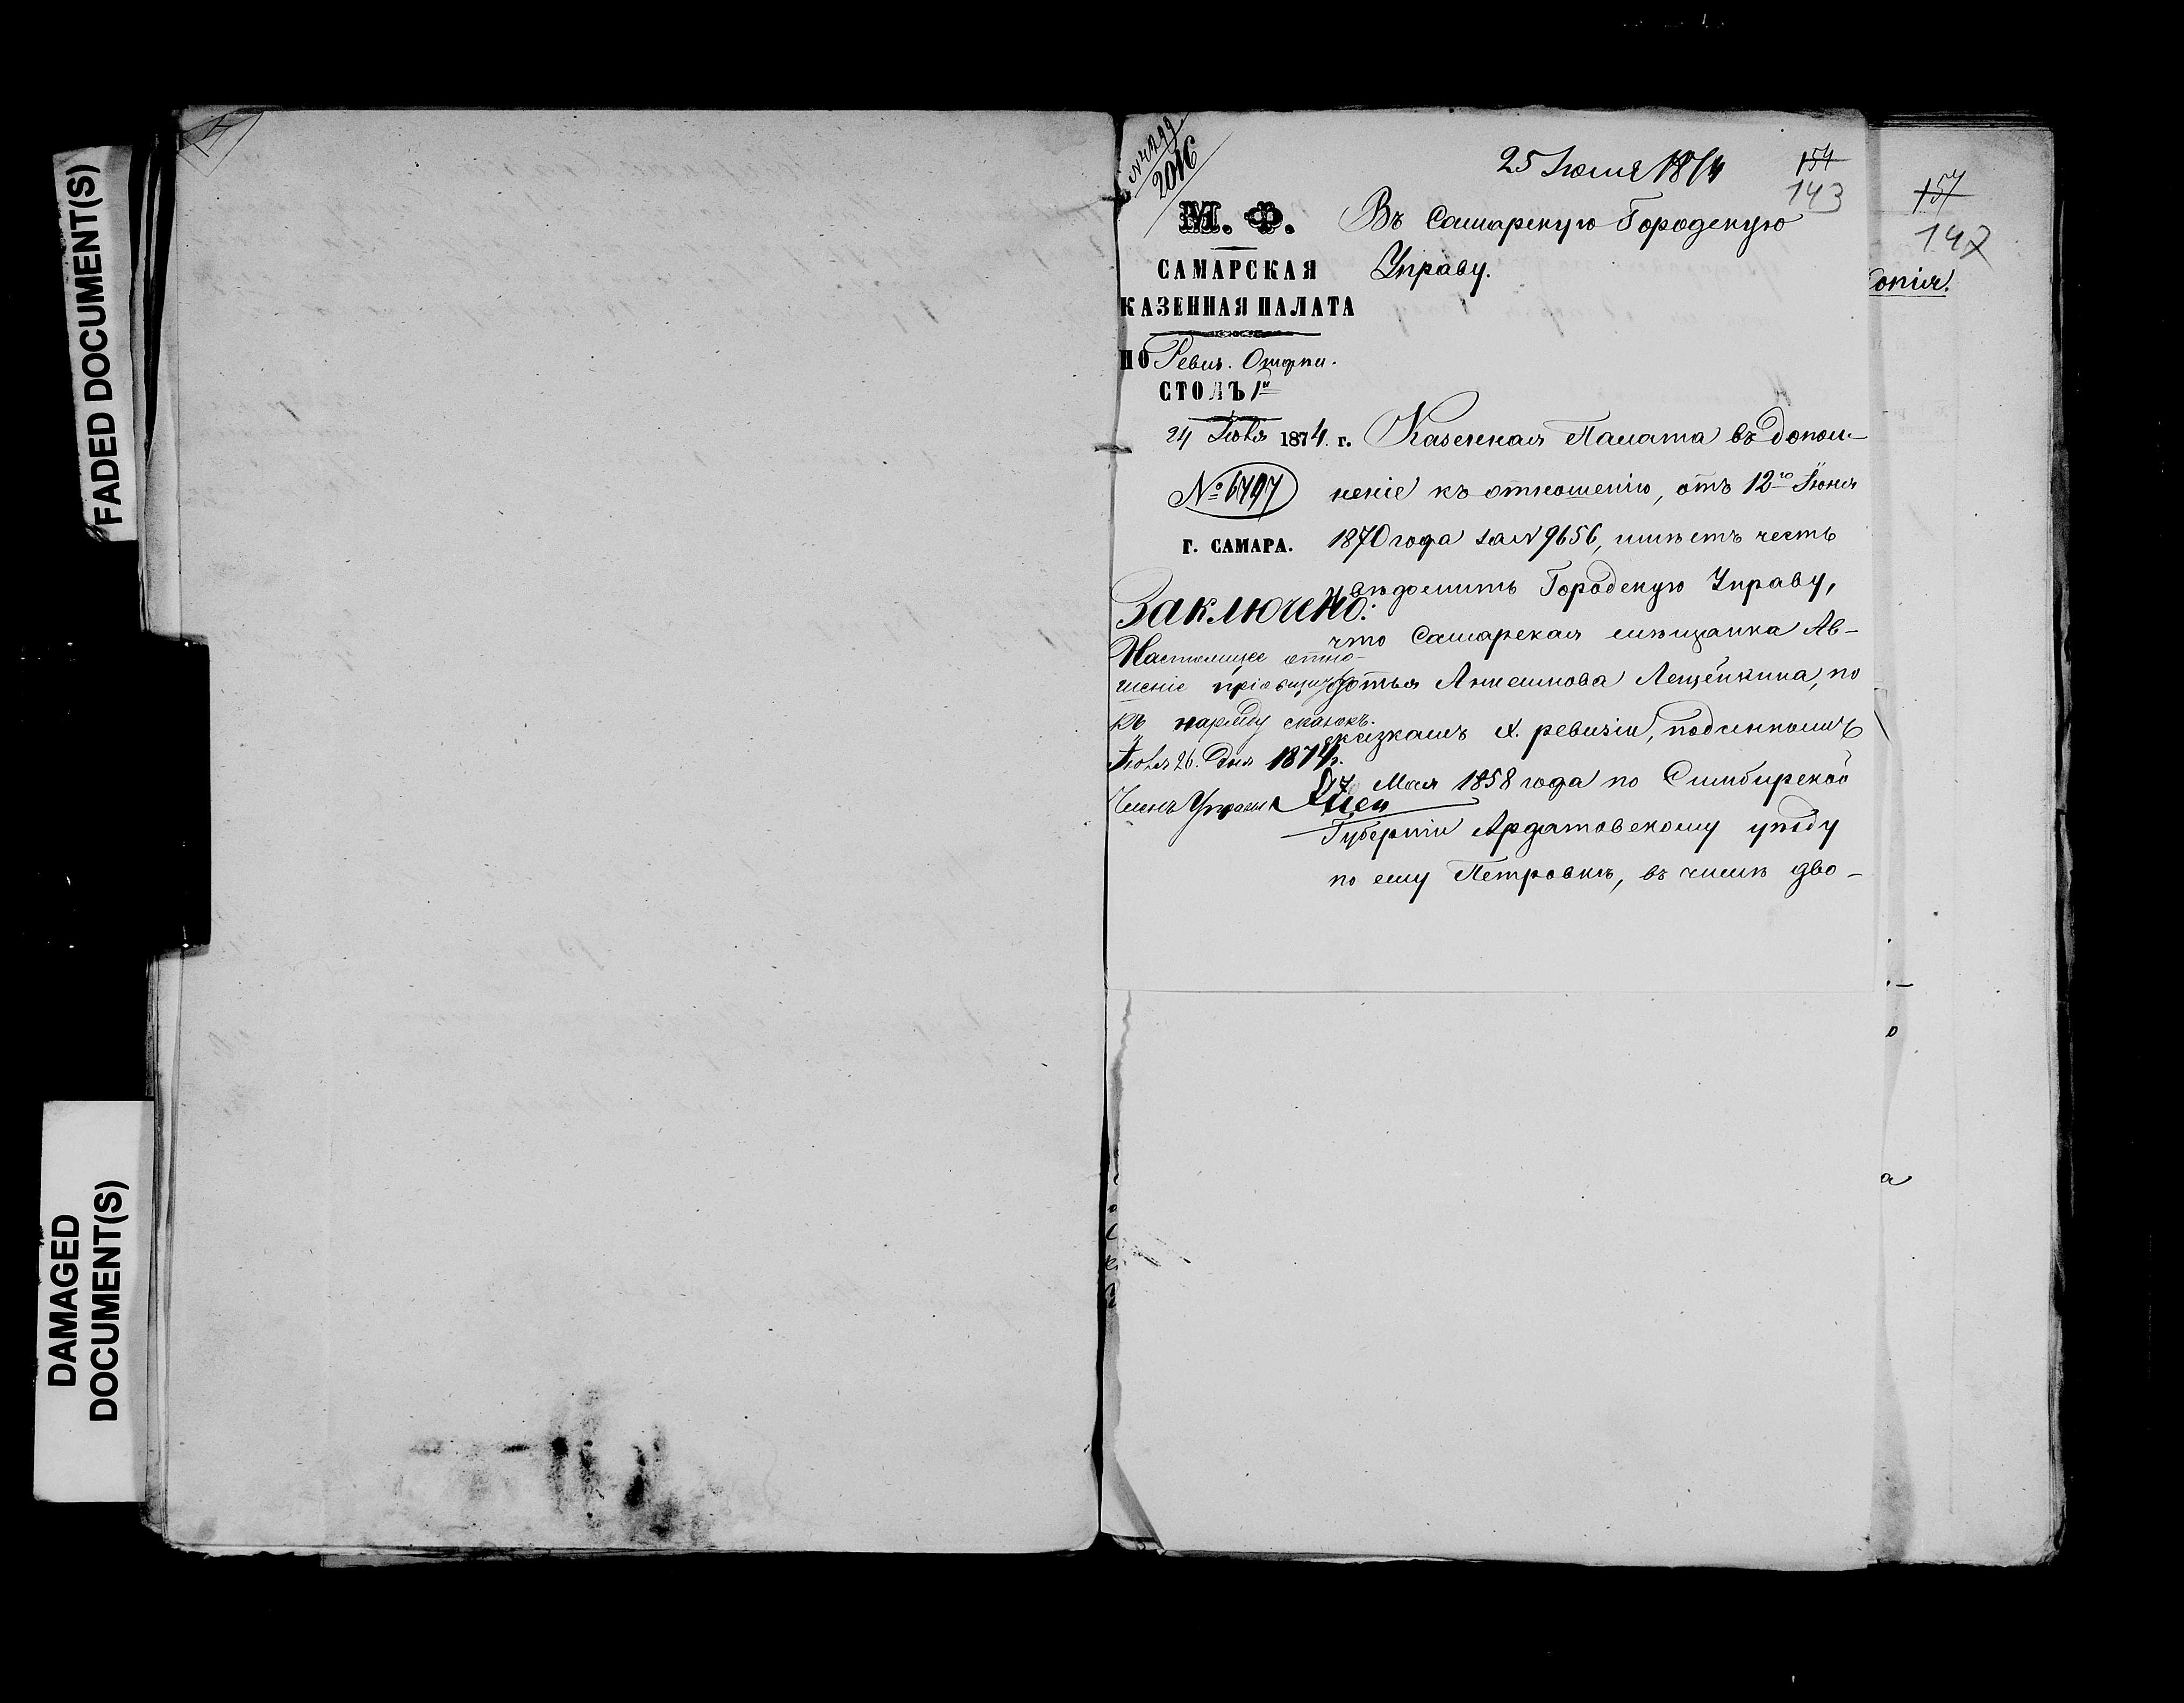 FADED DOCUMENT(S)
DAMAGED
DOCUMENT(S)
2016
25 Июля 1874
154
143
М. Ф.
САМАРСКАЯ
КАЗЕННАЯ ПАЛАТА
ПО Ревиз. Отдѣл.
СТОЛЪ 1й
24 Іюля 1874. г.
№ 6797
Г. САМАРА.
Въ Самарскую Городскую
Управу.
Казенная Палата въ допол-
неніе къ отношенію, отъ 12го Іюня
1870 года за N 9656, имѣетъ честь
увѣдомить Городскую Управу,
что Самарская мѣщанка Ав-
дотья Анисимова Лещенкина, по
сказкамъ X. ревизіи, подсинкомъ
27 Мая 1858 года по Симбирской
Губерніи Ардатовскому уѣзду
по селу Петровкѣ, въ числѣ дво-
Заключено:
Настоящее отно-
шеніе пріобщить
къ наряду сказокъ.
Іюля 26. дня 1874 г.
Членъ Управы
157
147
опія.
о
а